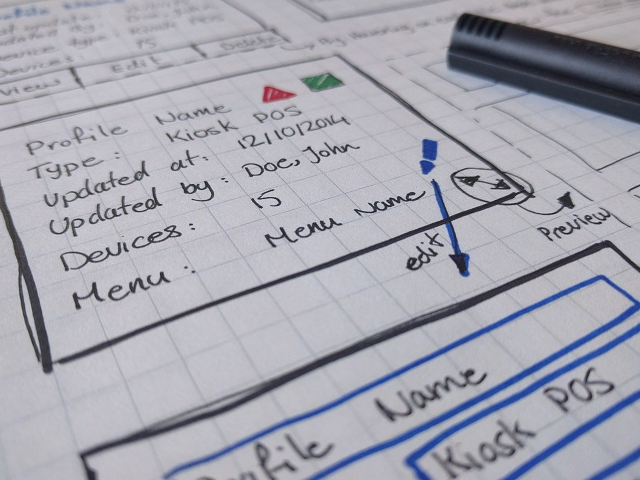 Devices: 15
View Edit Delete
Profile Name
Type: Kiosk POS
Updated at: 12/10/2014
Updated by: Doe, John
Devices: 15
Menu: Menu Name
edit
Preview
Profile Name
Kiosk POS